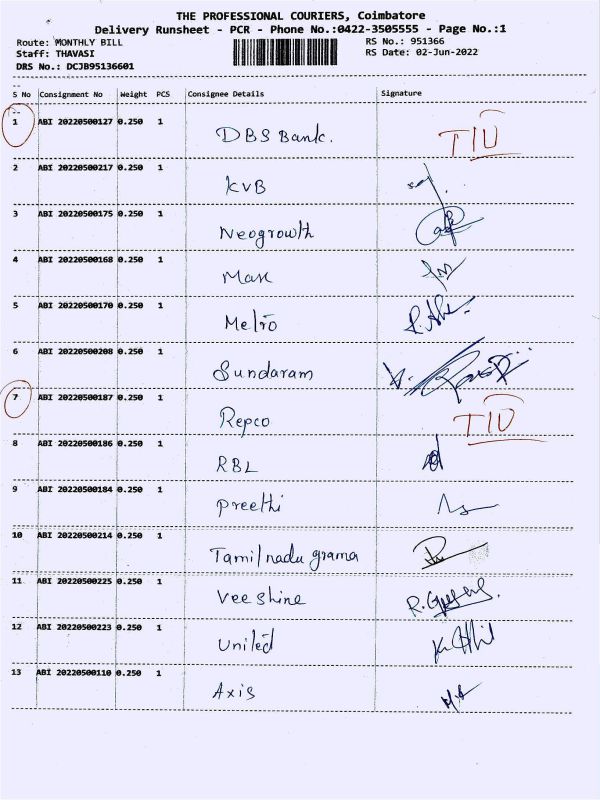 THE PROFESSIONAL COURIERS, Coimbatore
Delivery Runsheet - PCR - Phone No.:0422-3505555 - Page No.:1
Route: MONTHLY BILL RS No.: 951366
Staff: THAVASI RS Date: 02-Jun-2022
DRS No.: DCJB95136601
S No Consignment No Weight PCS Consignee Details Signature
1 ABI 20220500127 0.250 1 DBS Bank. TIU
2 ABI 20220500217 0.250 1 KVB
3 ABI 20220500175 0.250 1 Neogrowth
4 ABI 20220500168 0.250 1
5 ABI 20220500170 0.250 1 Metro
6 ABI 20220500208 0.250 1 Sundaram
7 ABI 20220500187 0.250 1 Repco TIU
8 ABI 20220500186 0.250 1 RBL
9 ABI 20220500184 0.250 1 Preethi
10 ABI 20220500214 0.250 1 Tamilnadu grama
11 ABI 20220500225 0.250 1 Veeshine
12 ABI 20220500223 0.250 1 United
13 ABI 20220500110 0.250 1 Axis